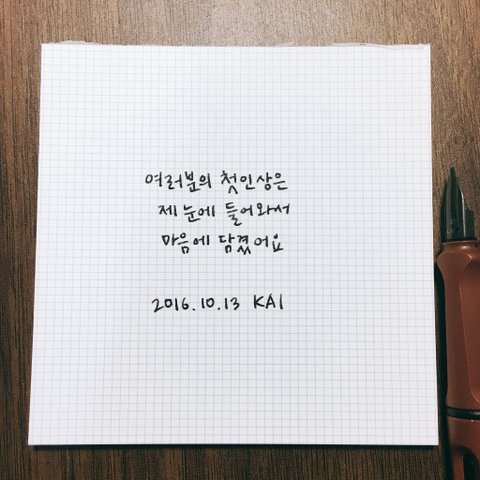 여러분의 첫인상은
제 눈에 들어와서
마음에 담겼어요
2016.10.13 KAI